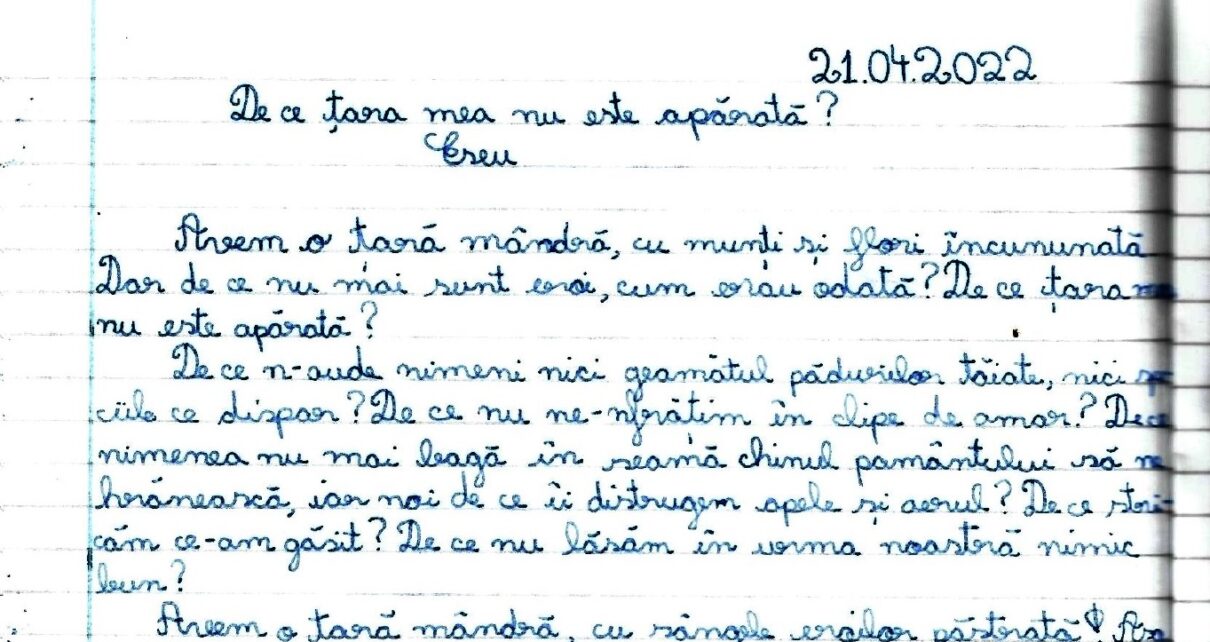 21.04.2022
De ce țara mea nu este apărată?
Eseu
Avem o țară mândră, cu munți și flori încununată
Dar de ce nu mai sunt eroi, cum erau odată? De ce țara
nu este apărată?
De ce n-aude nimeni nici geamătul pădurilor tăiate, nici
ciile ce dispar? De ce nu ne-nfrățim în clipe de amar? De ce
nimenea nu mai bagă în seamă chinul pamântului să ne
hrănească, iar noi de ce îi distrugem apele și aerul? De ce stri-
căm ce-am găsit? De ce nu lăsăm în urma noastră nimic
bun?
Avem o țară mândră, cu sângele eroilor păstrată!